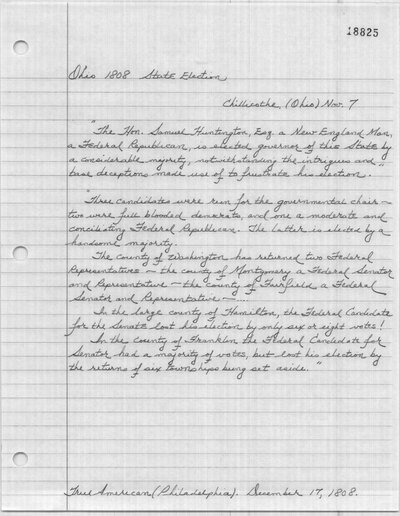 18825
Ohio 1808 State Election
Chillicothe, (Ohio) Nov. 7
"The Hon. Samuel Huntington, Esq. a New England Man,
a Federal Republican, is elected governor of this State by
a considerable majority, notwithstanding the intrigues and
base deceptions made use of to frustrate his election."
"Three candidates were run for the governmental chair—
two were full blooded democrats, and one a moderate and
conciliating Federal Republican. The latter is elected by a
handsome majority.
The county of Washington has returned two Federal
Representatives — the county of Montgomery a Federal Senator
and Representative — the county of Fairfield a Federal
Senator and Representative — ....
In the large county of Hamilton, the Federal Candidate
for the Senate lost his election by only six or eight votes!
In the county of Franklin the Federal Candidate for
Senator had a majority of votes, but lost his election by
the returns of six townships being set aside."
True American (Philadelphia). December 17, 1808.